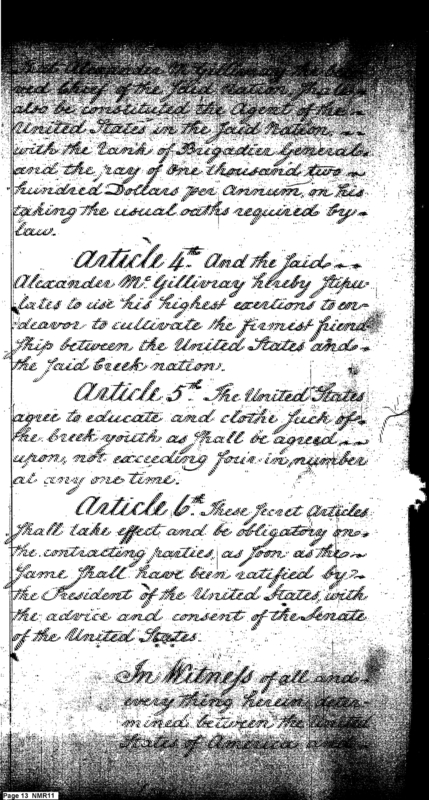 Alexander McGillivray the belo-
ved Chief of the said Nation, shall
also be constituted the Agent of the
United States in the said Nation,
with the rank of Brigadier General
and the pay of One thousand two
hundred Dollars per Annum, on his
taking the usual oaths required by
law.
Article 4th And the said
Alexander Mc.Gillivray hereby stipu
lates to use his highest exertions to en-
deavor to cultivate the firmest friend
ship between the United States and
the said Creek nation.
Article 5th The United States
agree to educate and clothe such of
the Creek youth as shall be agreed
upon, not exceeding four in number
at any one time.
Article 6th These secret Articles
shall take effect and be obligatory on
the contracting parties, as soon as the
same shall have been ratified by
the President of the United States, with
the advice and consent of the Senate
of the United States.
In Witness of all and
every thing herein, deter-
mined between the United
States of America and
Page 13 NMR11